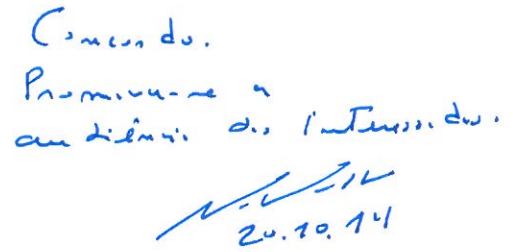 Concordo.
Promova-se a
audiência dos interessados.
20.10.14